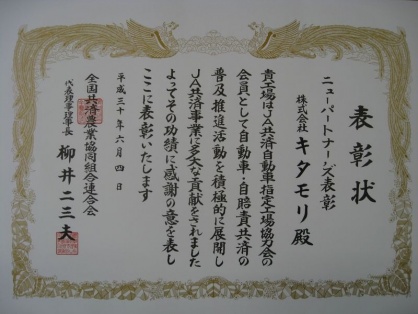 表彰状
ニューパートナーズ表彰
株式会社 キタモリ 殿
貴工場はJA共済自動車指定工場協力会の
会員として自動車・自賠責共済の
普及推進活動を積極的に展開し
JA共済事業に多大な貢献をされました
よってその功績に感謝の意を表し
ここに表彰いたします
平成三十年六月四日
全国共済農業協同組合連合会
代表理事理事長 柳井二三夫